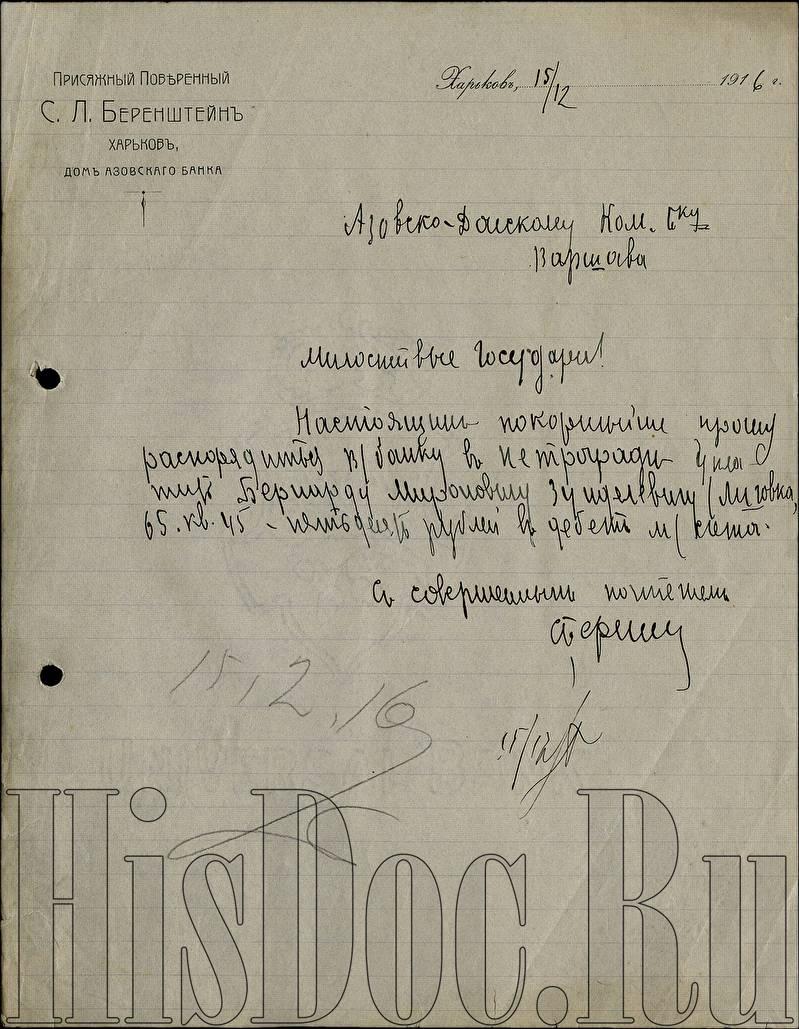 Присяжный Повѣренный
С. Л. Беренштейнъ
Харьковъ,
домъ Азовскаго Банка
Харьковъ, 15/12 1916 г.
Азовско-Донскому Ком. Бку
Милостивые Государи!
Настоящимъ покорнѣйше прошу
распорядиться В/банку въ Петроградѣ упла-
тить Бернарду Мироновичу Зунделевичу (Лиговка,
65. кв. 45 - пятьдесятъ рублей въ дебетъ м/счета.
Съ совершеннымъ почтеніемъ
15.12.16
15/12
HisDoc.Ru